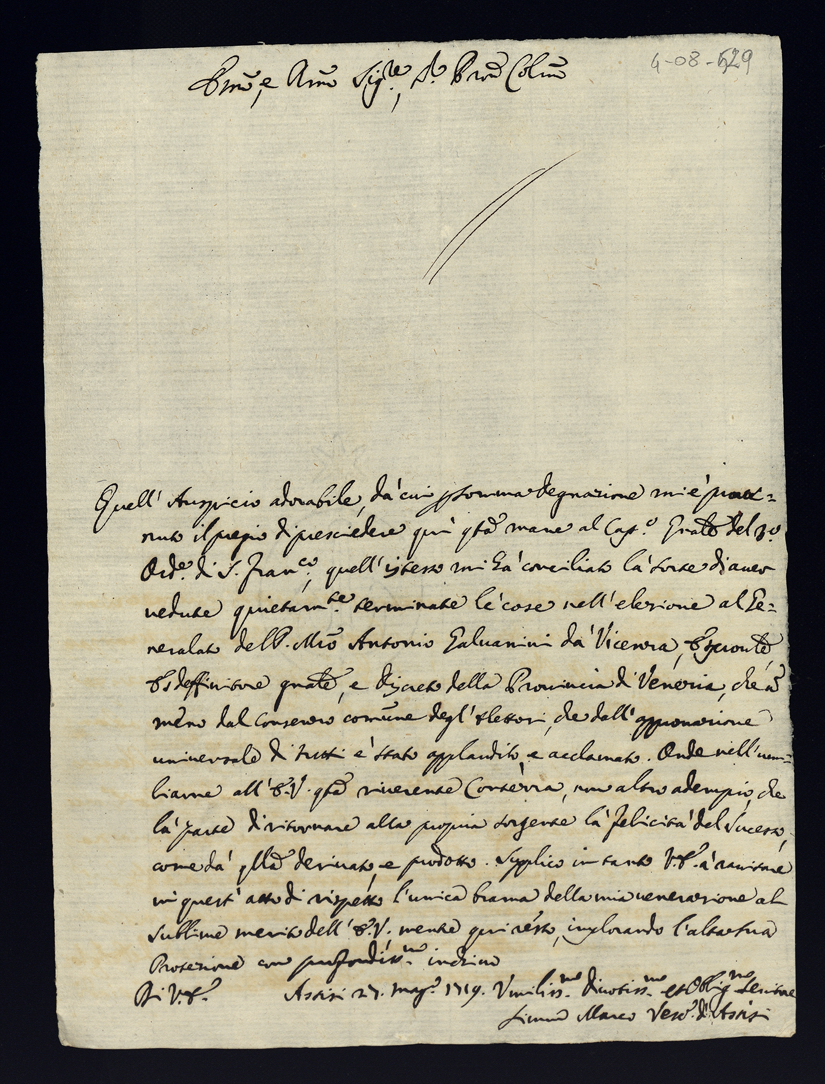 4-08-529
Emõ, e Rmõ Sig.re, Sr. Pron Colmõ
Quell' Auspicio adorabile, da cui p somma degnazione mi é prove=
nuto il pregio di presciedere quì qtã mane al Cap.o Gnãle del 3.o
Ord.e di S. Fran.co, quell' istesso mi hà conciliato la sorte di aver
vedute quietam.te terminate le cose nell' elezione al Ge=
neralato del P. Mrõ Antonio Galuanini da Vicenza,
gnãle, e Discreto della Provincia di Venezia, che nõ
meno dal Consenso comune degl' Elettori, che dall' approvazione
universale di tutti é stato applaudito e acclamato. Onde nell' umi=
liarne all' E.V. qtã riverente Contezza, non altro adempio, che
la parte di ritornare alla propria sorgente la felicità del Sucesso,
come da qllã derivato, e prodotto. Supplico in tanto V.E. à ravisare
in quest' atto di rispetto l' unica brama della mia venerazione al
sublime merito dell' E.V. mentre qui resto, implorando l' alta sua
Protezione con profondiss.mo inchino
Di V.E.
Assisi 27. mag.o 1719. Vmiliss.mo Divotiss.mo et Obblig.mo Servitore
Marco Vesc.o d' Assisi